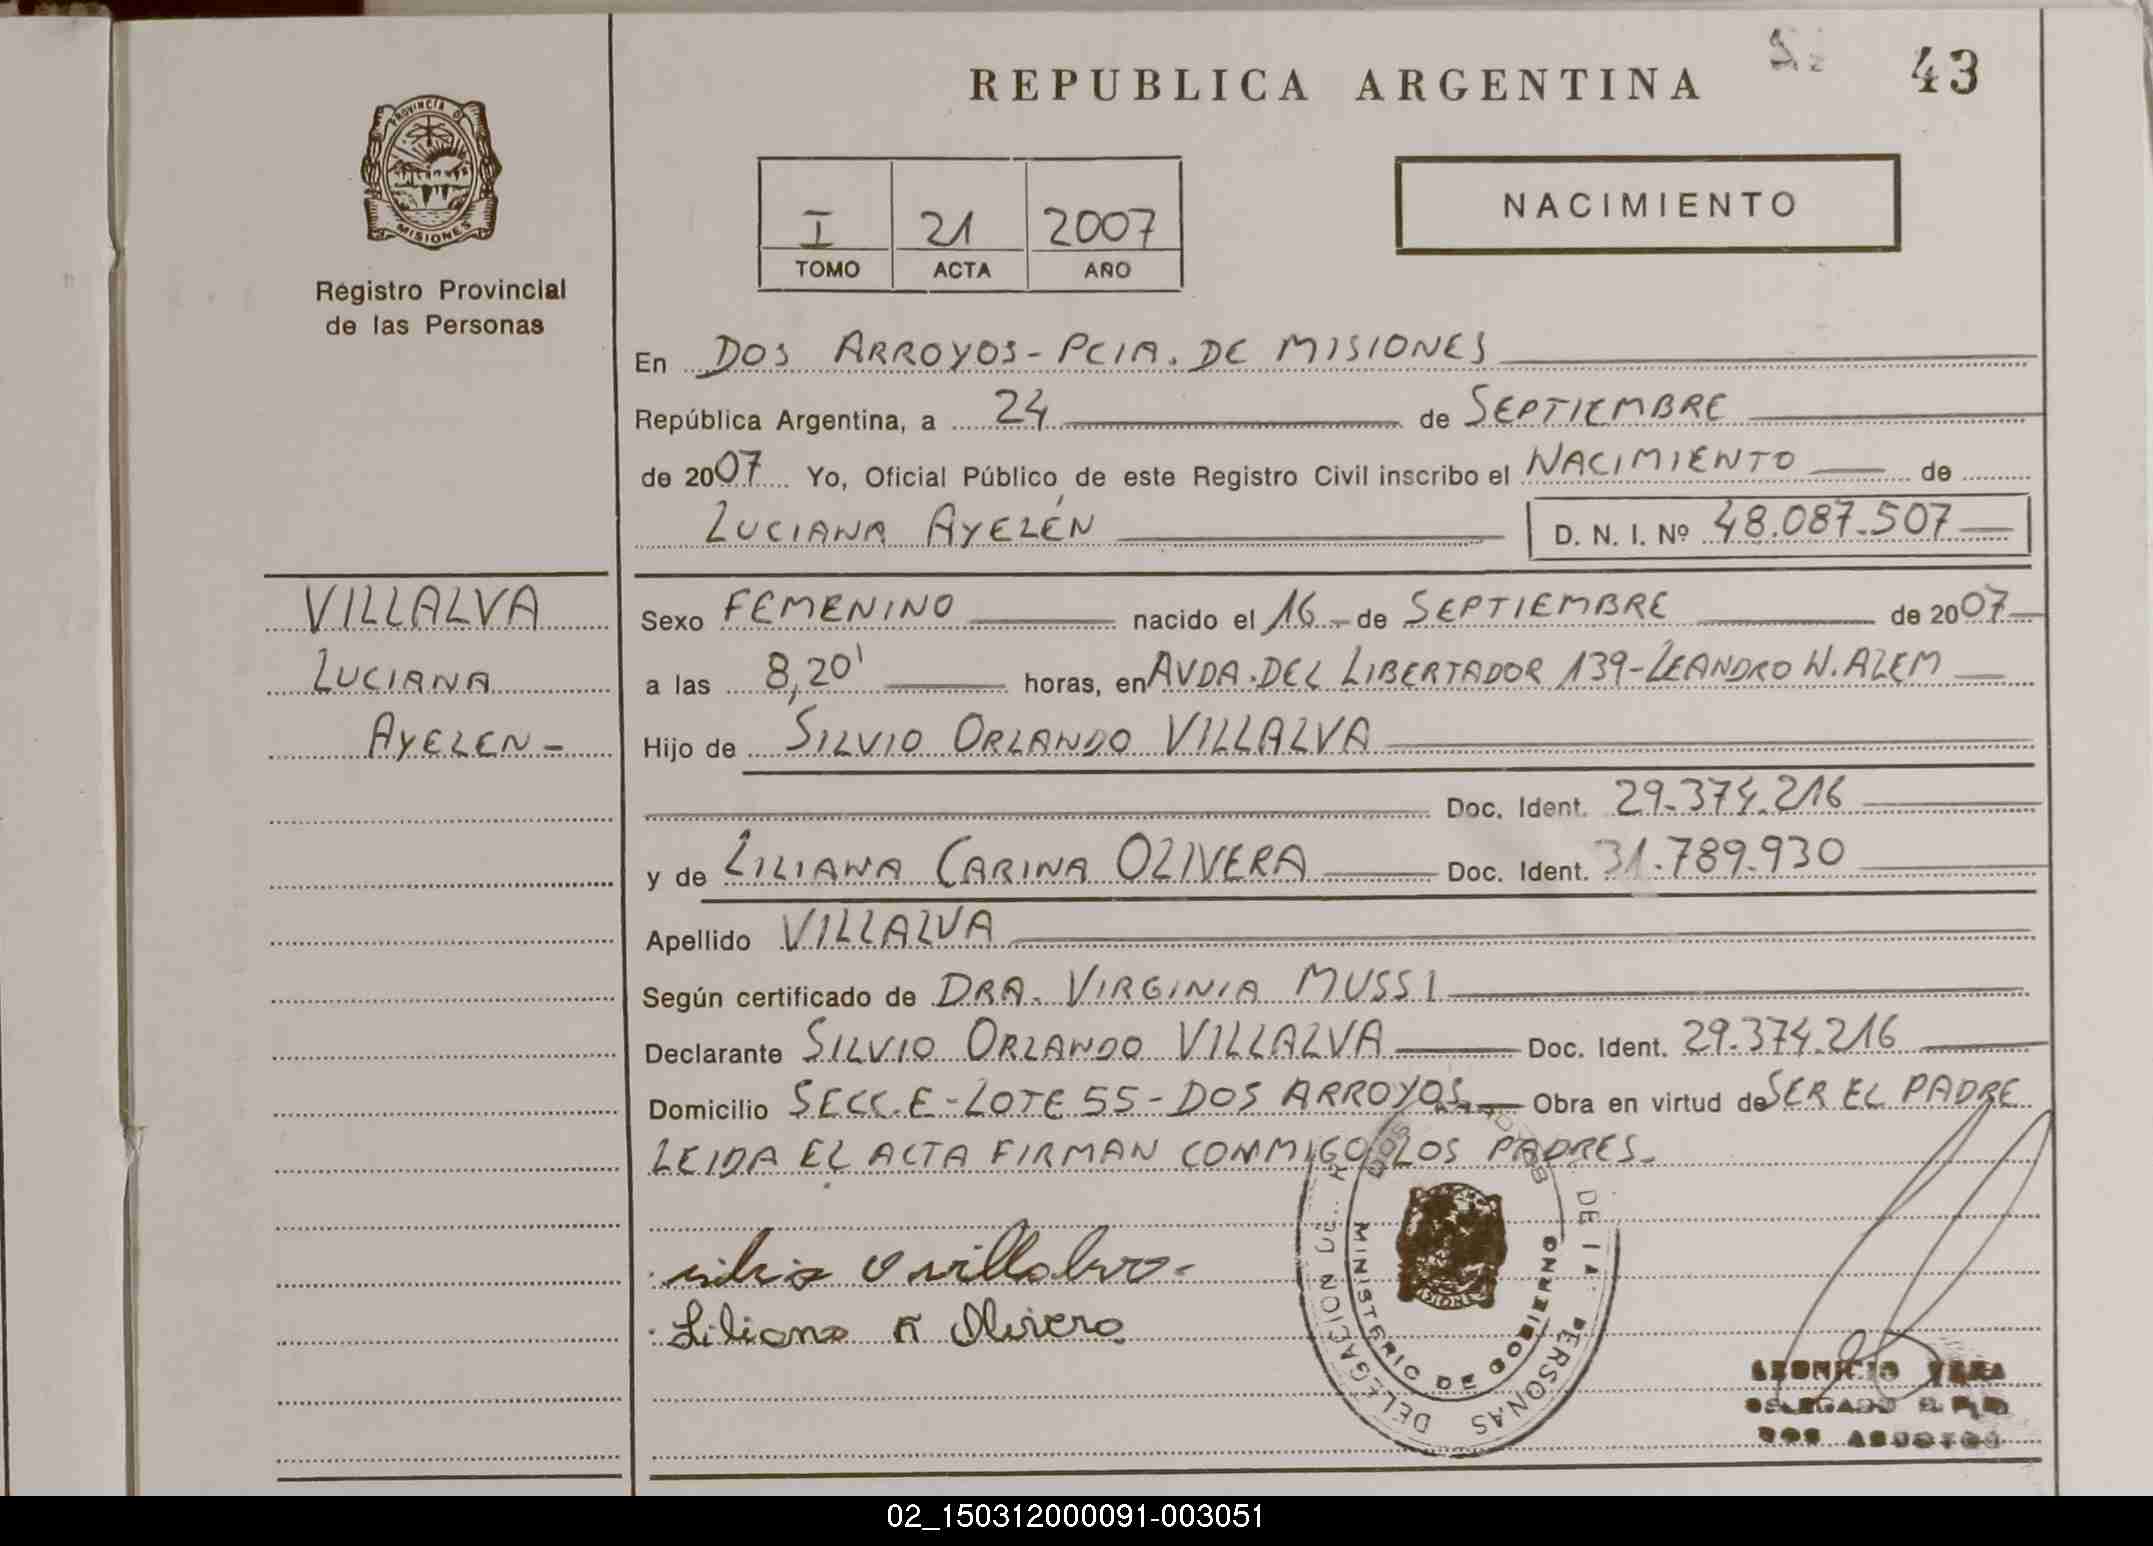 REPUBLICA ARGENTINA
43
PROVINCIA DE
MISIONES
Registro Provincial
de las Personas
I 21 2007
TOMO ACTA AÑO
NACIMIENTO
En DOS ARROYOS - PCIA. DE MISIONES
República Argentina, a 24 de SEPTIEMBRE
de 2007 Yo, Oficial Público de este Registro Civil inscribo el NACIMIENTO de
LUCIANA AYELÉN D. N. I. Nº 48.087.507
VILLALVA
LUCIANA
AYELEN -
Sexo FEMENINO nacido el 16 de SEPTIEMBRE de 2007
a las 8,20' horas, en AVDA. DEL LIBERTADOR 139 - LEANDRO N. ALEM
Hijo de SILVIO ORLANDO VILLALVA
Doc. Ident. 29.374.216
y de LILIANA CARINA OLIVERA Doc. Ident. 31.789.930
Apellido VILLALVA
Según certificado de DRA. VIRGINIA MUSSI
Declarante SILVIO ORLANDO VILLALVA Doc. Ident. 29.374.216
Domicilio SECC. E - LOTE 55 - DOS ARROYOS. Obra en virtud de SER EL PADRE
LEIDA EL ACTA FIRMAN CONMIGO LOS PADRES.
DELEGACION DE DE LA PERSONAS
MINISTERIO DE GOBIERNO
DOS ARROYOS
Silvio O villalva.
Liliana Olivera
VERA
DELEGADO R. P. P.
DOS ARROYOS
02_150312000091-003051